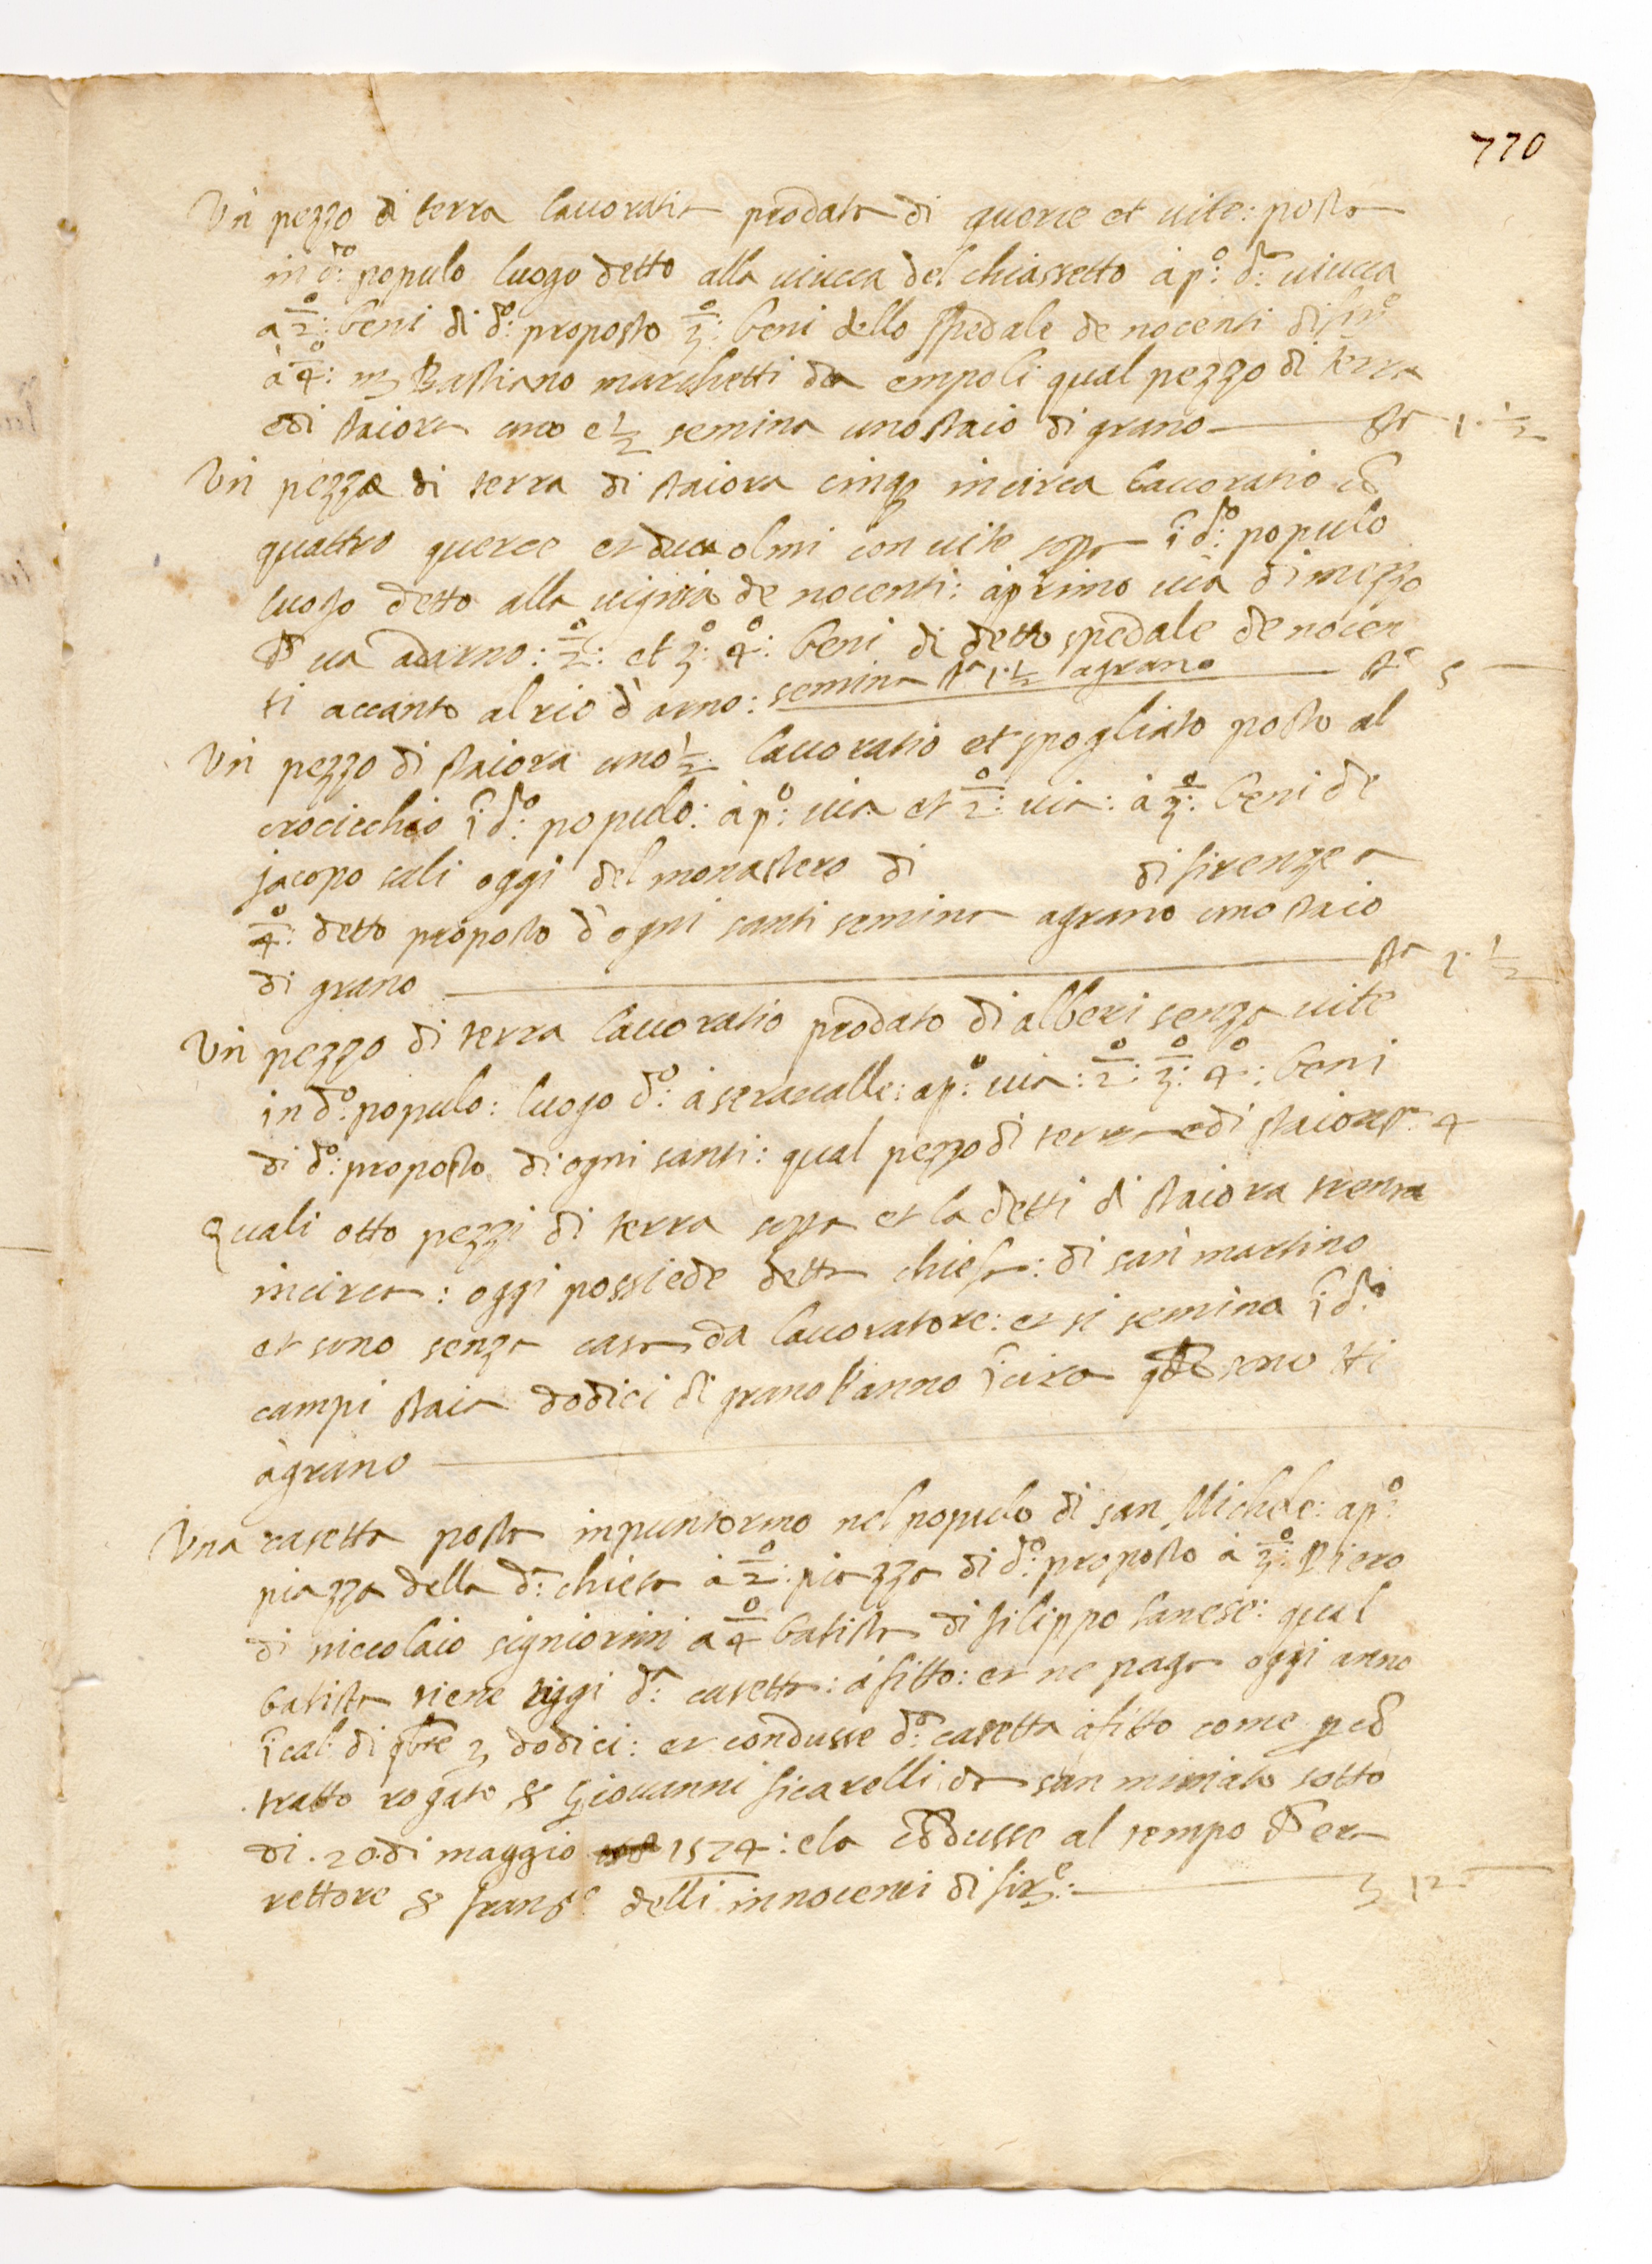 770
Un pezzo di terra lavoratia prodata di querce et vite: posta
in d.o: populo luogo detto alla viucca del chiassetto à p.o: d.a: viucca
à 2.o: beni di d.o: proposto 3.o: beni dello spedale de nocenti di fir.e
à 4.o: m Bastiano marchetti da empoli qual pezzo di terra
e di staiora uno e 1/2 semina uno staio di grano — sta 1. 1/2
Un pezzo di terra di staiora cinq incirca lavoratio cō
quattro querce et dua olmi con vite sopra ī d.o: populo
luogo detto alla vignia de nocenti: à primo via di mezzo
che va ad arno: 2.o: et 3.o: 4.o: beni di detto spedale de nocen
ti accanto al rio d'arno: semina sta 1. 1/2 a grano — sta 5 —
Un pezzo di staiora uno 1/2. lavoratio et spogliato posto al
crocicchio ī d.o: populo: à p.o: via et 2.o: via: à 3.o: beni de
jacopo sali oggi del monastero di di firenze a
4.o: detto proposto d'ogni santi semina a grano uno staio
di grano — sta 1. 1/2
Un pezzo di terra lavoratio prodato di alberi senza vite
in d.o: populo: luogo d.o: à seravalle: a p.o: via: 2.o: 3.o: 4.o: beni
di d.o: proposto di ogni santi: qual pezzo di terra e di staiora 4
Quali otto pezzi di terra sopra et la detti di staiora trenta
incirca: oggi possiede detta chiesa: di san martino
et sono senza casa da lavoratore: et si semina ī d.i
campi staia dodici di grano l'anno ī circa sono tti
à grano —
Una casetta posta in puntormo nel populo di san Michele: a p.o:
piazza della d.a: chiesa à 2.o: piazza di d.o: proposto à 3.o: Piero
di niccolaio signiorini à 4.o batista di filippo sanese: qual
batista tiene oggi d.a: casetta: à fitto: et ne paga oggi anno
ī cal: di dodici: et condusse d.a: casetta à fitto come p cō
tratto rogato giovanni ficarelli da san miniato sotto
di. 20. di maggio 1574: e la cōdusse al tempo che era
rettore franc.o delli innocenti di fir.e: — 12 —